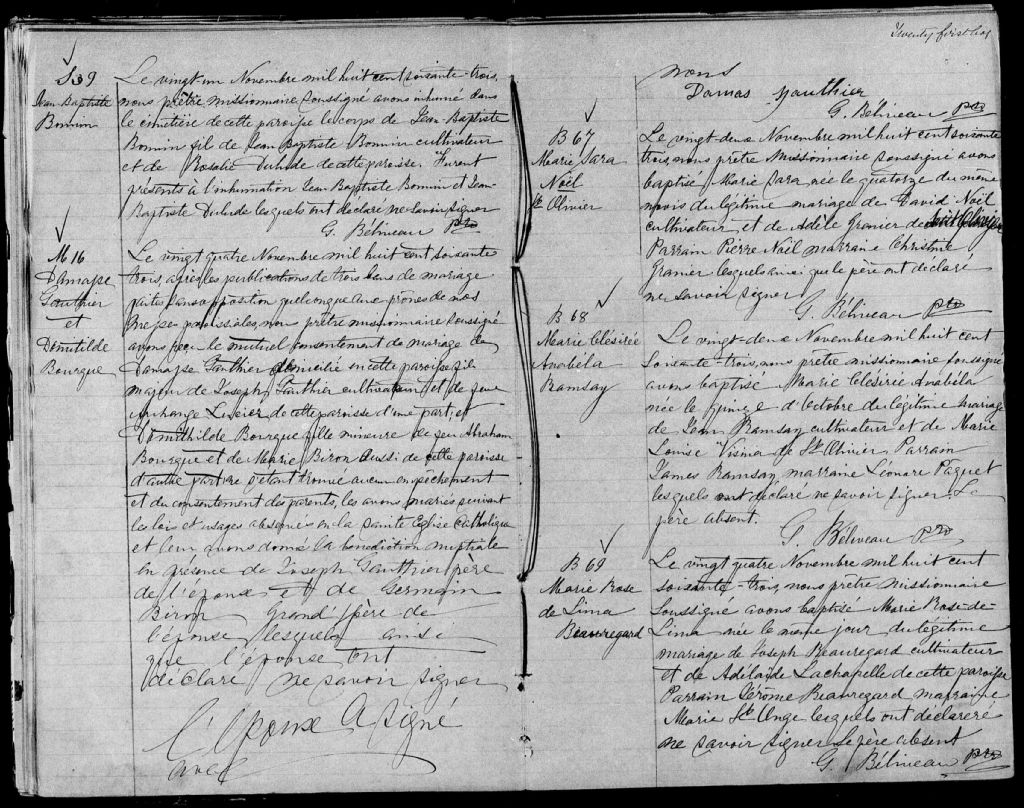 S39
Jean Baptiste
Bonnin
Le vingt-un Novembre mil huit cent soixante-trois,
nous prêtre missionnaire soussigné avons inhumé dans
le cimetière de cette paroisse le corps de Jean-Baptiste
Bonnin fil de Jean Baptiste Bonnin cultivateur
et de Rosalie Dulude de cette paroisse. Furent
présents à l'inhumation Jean Baptiste Bonnin et Jean-
Baptiste Dulude lesquels ont déclaré ne savoir signer
G. Béliveau Ptre
M16
Damase
Gauthier
et
Domitilde
Bourque
Le vingt quatre Novembre mil huit cent soixante
trois, après les publications de trois bans de mariage
faites sans opposition quelconque aux prônes de nos
Messes paroissiales, nous prêtre missionnaire soussigné
avons reçu le mutuel consentement de mariage de
Damase Gauthier domicilié en cette paroisse fils
majeur de Joseph Gauthier cultivateur et de feue
Archange Lucier de cette paroisse d'une part; et
Domithilde Bourque fille mineure de feu Abraham
Bourque et de Marie Biron aussi de cette paroisse
d'autre part; ne s'étant trouvé aucun empêchement
et du consentement des parents, les avons mariés suivant
les lois et usages observés en la sainte Eglise Catholique
et leur avons donné la bénédiction nuptiale
en présence de Joseph Gauthier père
de l'époux et de Germain
Biron Grand'père de
l'épouse lesquels ainsi
que l'épouse ont
déclaré ne savoir signer
l'Epoux a signé
avec
Twenty first
nous
Damas Gauthier
G. Béliveau Ptre
B67
Marie Sara
Noël
St Olivier
Le vingt-deux Novembre mil huit cent soixante
trois, nous prêtre Missionnaire soussigné avons
baptisé Marie Sara née le quatorze du même
mois du légitime mariage de David Noël
cultivateur et de Adèle Granier de
Parrain Pierre Noël marraine Christine
Granier lesquels ainsi que le père ont déclaré
ne savoir signer
G. Béliveau Ptre
B68
Marie Clésirée
Anabéla
Ramsay
Le vingt-deux Novembre mil huit cent
soixante-trois, nous prêtre missionnaire soussigné
avons baptisé Marie Clésirée Anabéla
née le quinze d'Octobre du légitime mariage
de Jean Ramsay cultivateur et de Marie
Louise Visina de St Olivier Parrain
James Ramsay, marraine Léonore Paquet
lesquels ont déclaré ne savoir signer. Le
père absent.
G. Béliveau Ptre
B69
Marie Rose
de Lima
Beauregard
Le vingt quatre Novembre mil huit cent
soixante-trois, nous prêtre missionnaire
soussigné avons baptisé Marie Rose-de-
Lima née le même jour du légitime
mariage de Joseph Beauregard cultivateur
et de Adélaïde Lachapelle de cette paroisse
Parrain Jérôme Beauregard marraine
Marie St Onge lesquels ont déclareré
ne savoir signer Le père absent
G. Béliveau Ptre